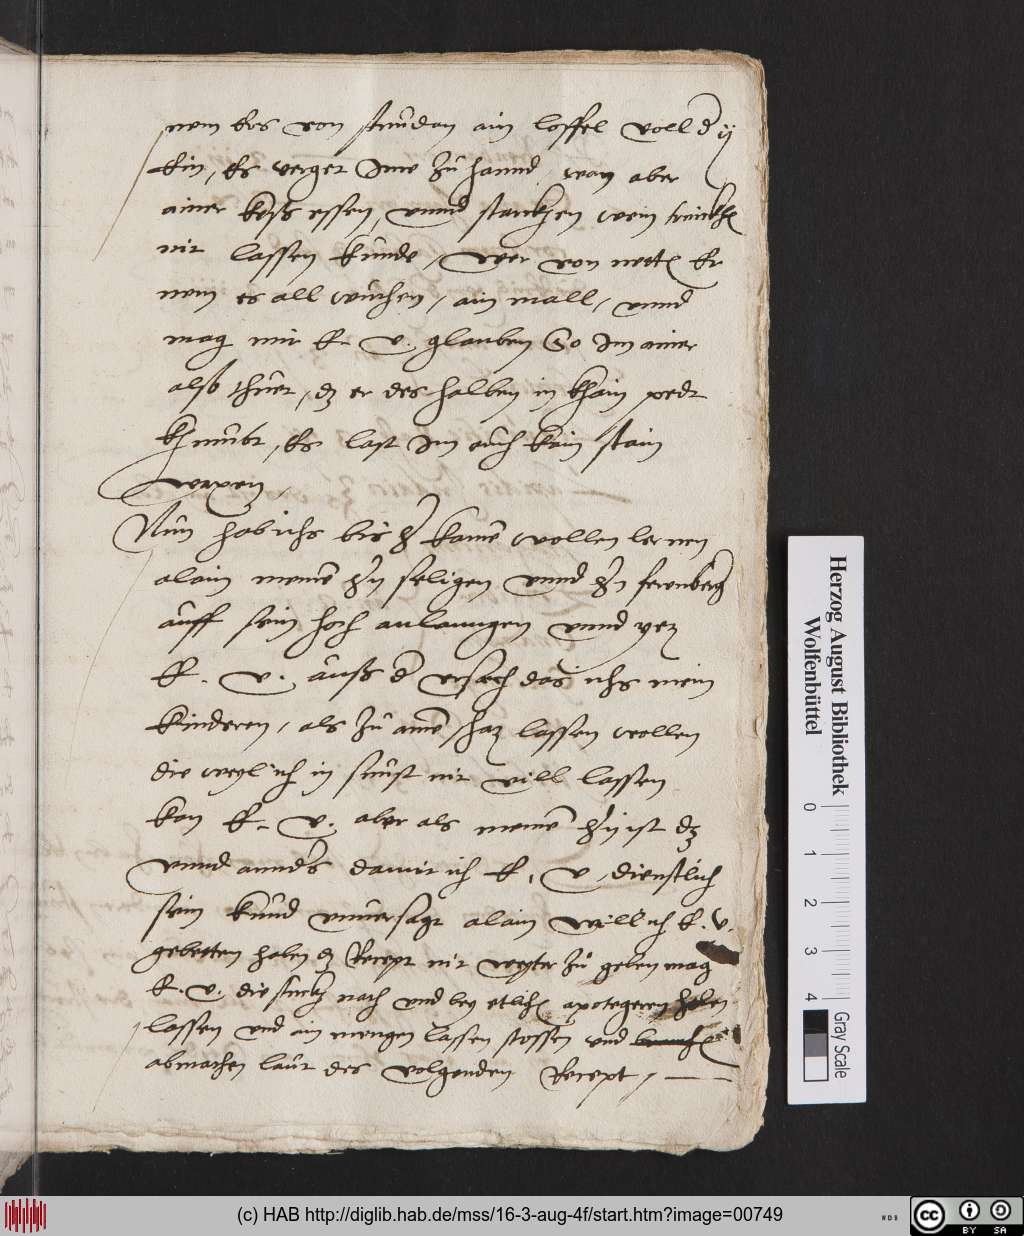 nem Ess von stunden ain loffel voll d ij
kin, Es verget Ime zu hannd, wan aber
ainer köss essen, vnnd starckhen wein trinckhen
nit lassen kunde, Der von netten Er
nem es all wuchen, ain mall, vnnd
mag mir E. v. glauben So Im ainer
alsß thuet, dz er des halben in khain pedt
khumbt, Es last Im auch kain stain
waxen,
Nun hab ichs bis her kainer wollen lernen
alain meinem hern seligen vnnd hern
auff sein hoch anlanngen vnnd yez
E. v. auss der vrsach das ichs mein
kinderen, als zu ainem schaz lassen wollen
die weyl ich in sunst nit vill lassen
kan E. v. aber als meinem hern ist dz
vnnd annders damit ich E. v. dienstlich
sein kund vnuersagt alain will ich E. v.
gebetten haben dz Recept nit weyter zu geben mag
E. v. die stuckh nach vnd bey etlichen apotegeren holen
lassen vnd ain mengen lassen stossen vnd
abmachen laut des volgenden Recept,
Herzog August Bibliothek
Wolfenbüttel
0 1 2 3 4
Gray Scale
(c) HAB http://diglib.hab.de/mss/16-3-aug-4f/start.htm?image=00749
WDB
cc BY SA